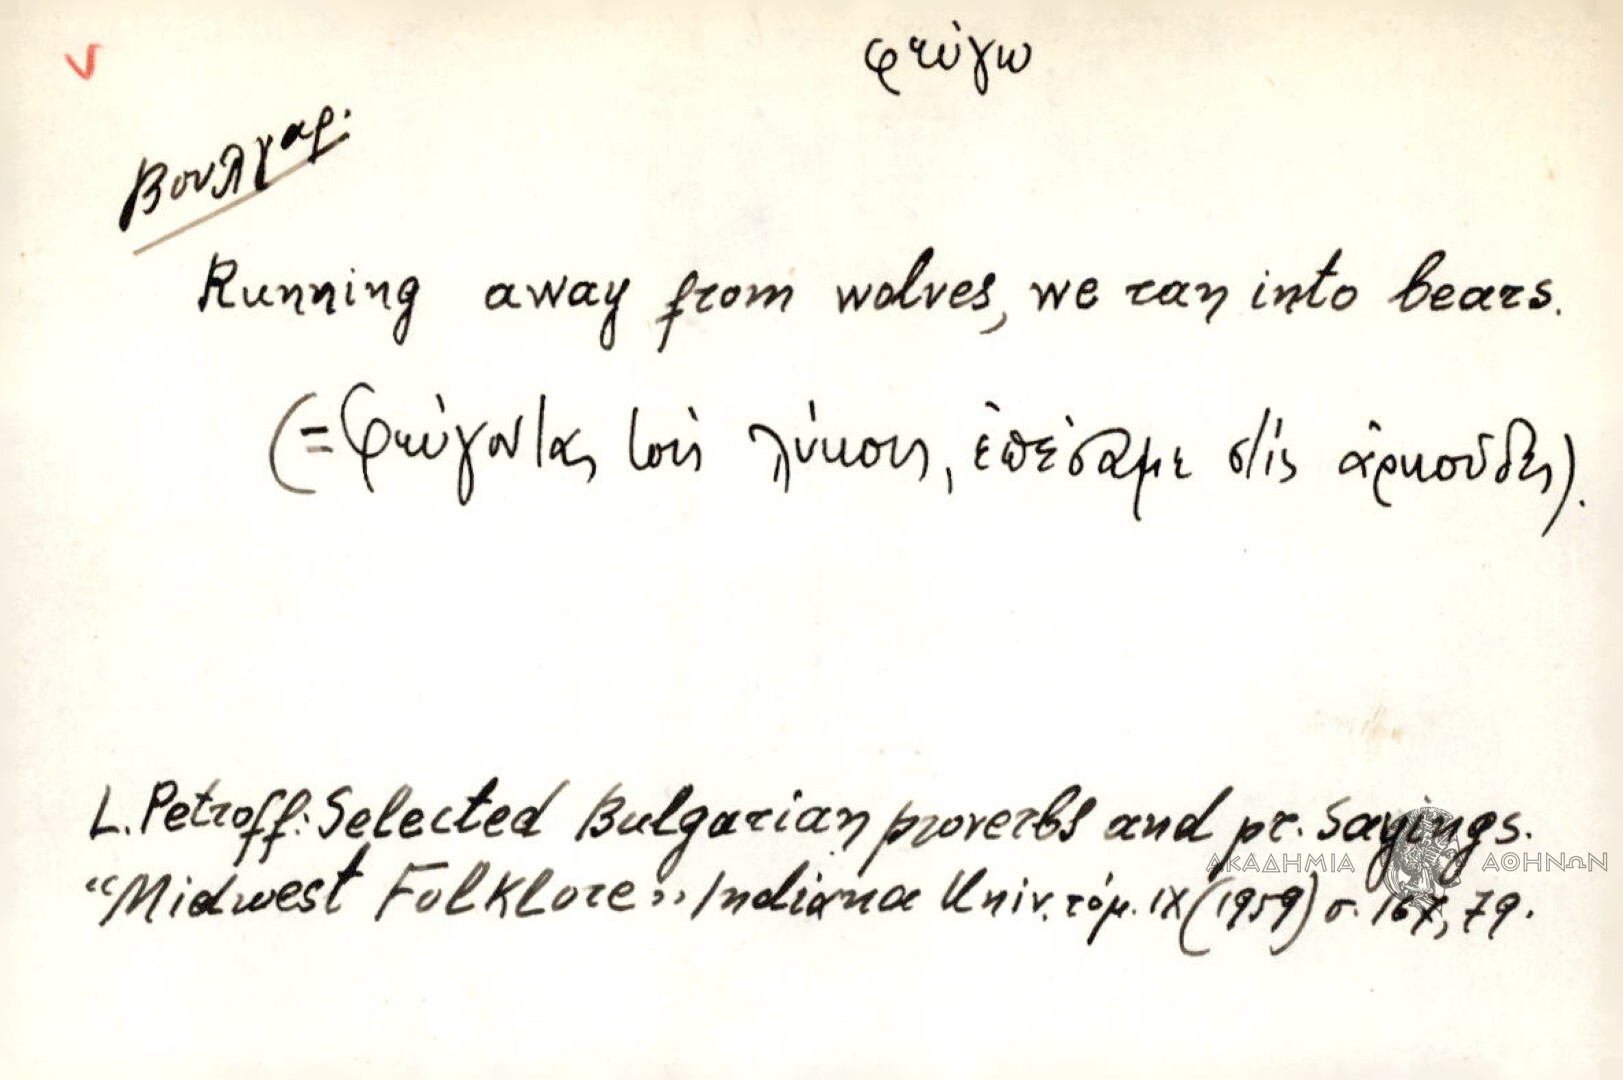 φεύγω
Βουλγαρ.
Running away from wolves, we ran into bears.
(=Φεύγοντας τοὺς λύκους, ἐπέσαμε στὶς ἀρκοῦδες).
L. Petroff: Selected Bulgarian proverbs and pr. Sayings.
ΑΚΑΔΗΜΙΑ ΑΘΗΝΩΝ
"Midwest Folklore" Indiana Univ. τόμ. IX (1959) σ. 79.